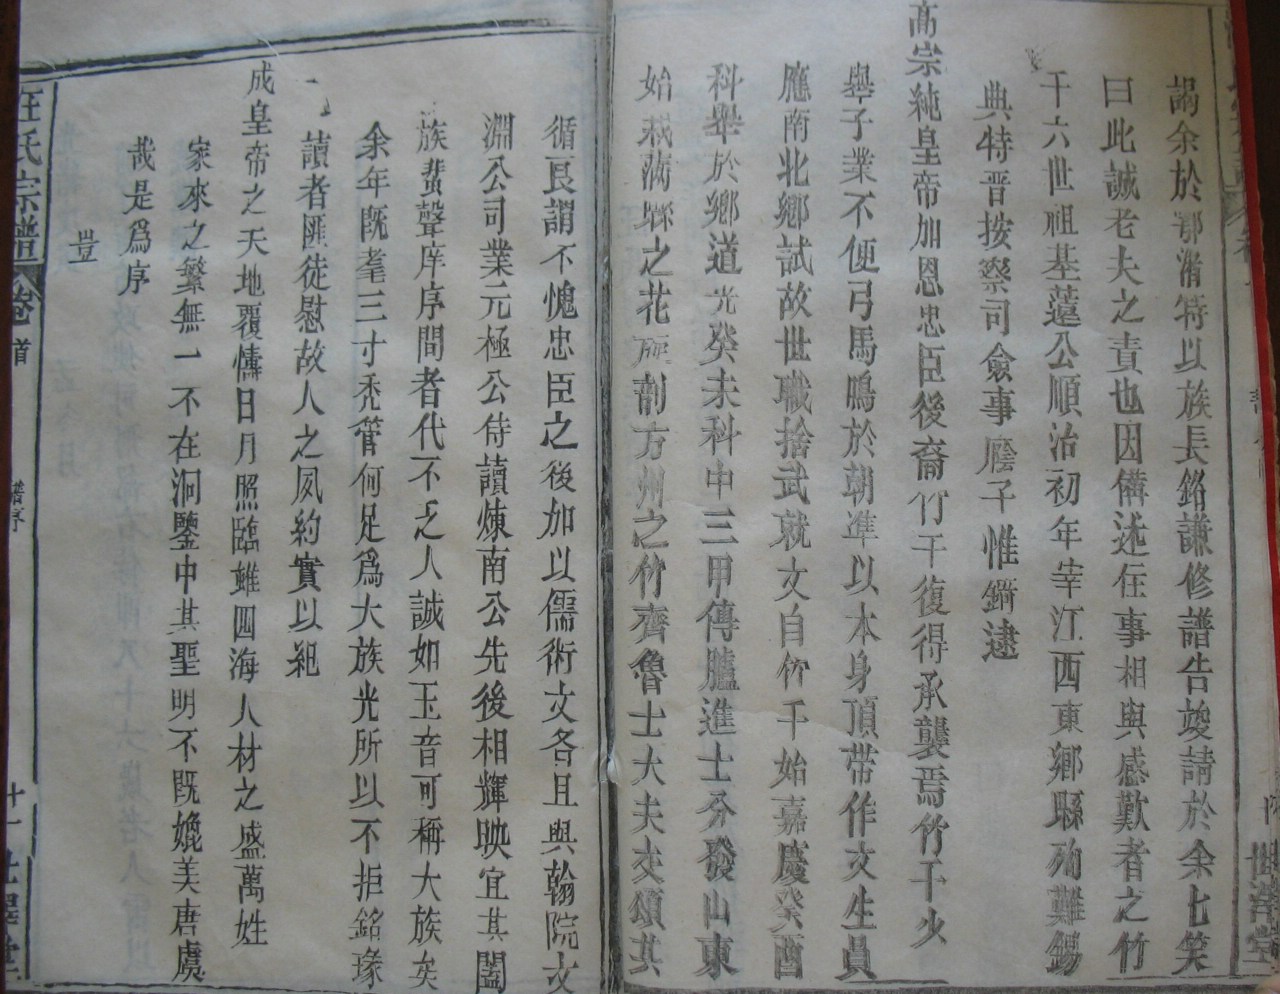 謁余於鄂渚特以族長銘謙修譜告竣請於余余笑
曰此誠老夫之責也因備述往事相與感歎者之竹
干六世祖基薳公順治初年宰江西東鄉縣殉難錫
典特晋按察司僉事廕子惟鑭逮
高宗純皇帝加恩忠臣後裔竹干復得承襲焉竹干少
舉子業不便弓馬鳴於朝準以本身頂帶作文生員
應南北鄉試故世職捨武就文自竹干始嘉慶癸酉
科舉於鄉道光癸未科中三甲傳臚進士分發山東
始栽滿縣之花旋割方州之竹齊魯士大夫交頌其
循良謂不愧忠臣之後加以儒術文名且與翰院文
淵公司業元極公侍讀煉南公先後相輝映宜其闔
族蜚聲庠序間者代不乏人誠如玉音可稱大族矣
余年既耄三寸禿管何足為大族光所以不拒銘瑑
讀者匪徒慰故人之夙約實以祀
成皇帝之天地覆幬日月照臨雖四海人材之盛萬姓
家來之繁無一不在洞鑒中其聖明不既媲美唐虞
哉是為序
豈
汪氏宗譜
卷首
譜序
十一
世澤堂